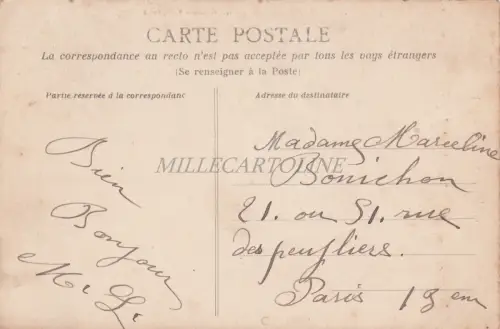 CARTE POSTALE
La correspondance au recto n'est pas acceptée par tous les pays étrangers
(Se renseigner à la Poste)
Partie réservée à la correspondance
Adresse du destinataire
Bien
Bonjour
M. L.
MILLECARTOLINE
Madame Marceline
Bonichon
21. ou 51. rue
des peupliers.
Paris 13 em